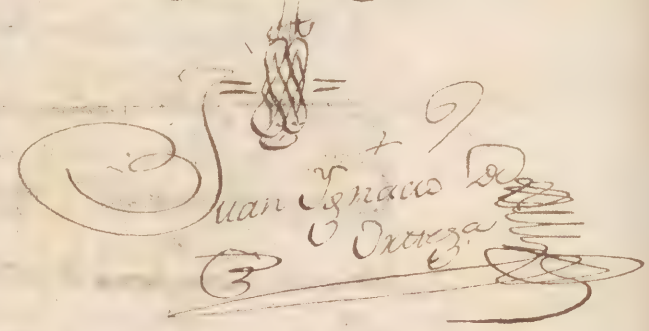 Juan Ygnacio De
Orttega